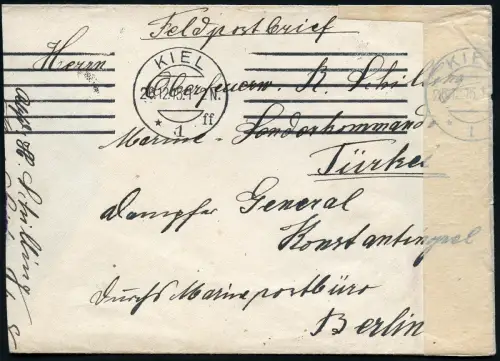 Feldpostbrief
Herrn
KIEL
1
ff
Oberfeuerw. R. Schilling
Marine-Sonderkommando
Türkei
Dampfer General
Konstantinopel
durch Marinepostbüro
Berlin
KIEL
1
Schilling